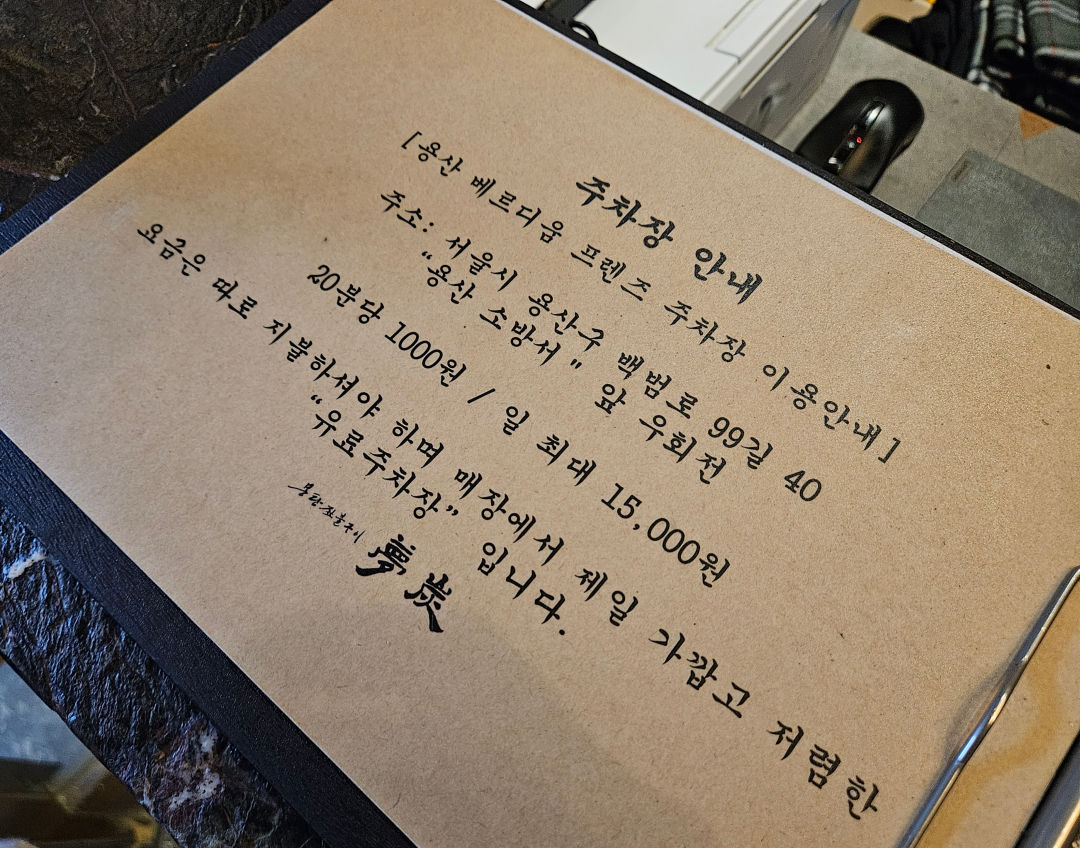 주차장 안내
[용산 베르디움 프렌즈 주차장 이용안내]
주소: 서울시 용산구 백범로 99길 40
“용산 소방서” 앞 우회전
20분당 1000원 / 일 최대 15,000원
요금은 따로 지불하셔야 하며 매장에서 제일 가깝고 저렴한
“유료주차장” 입니다.
몽탄짚불구이
夢炭